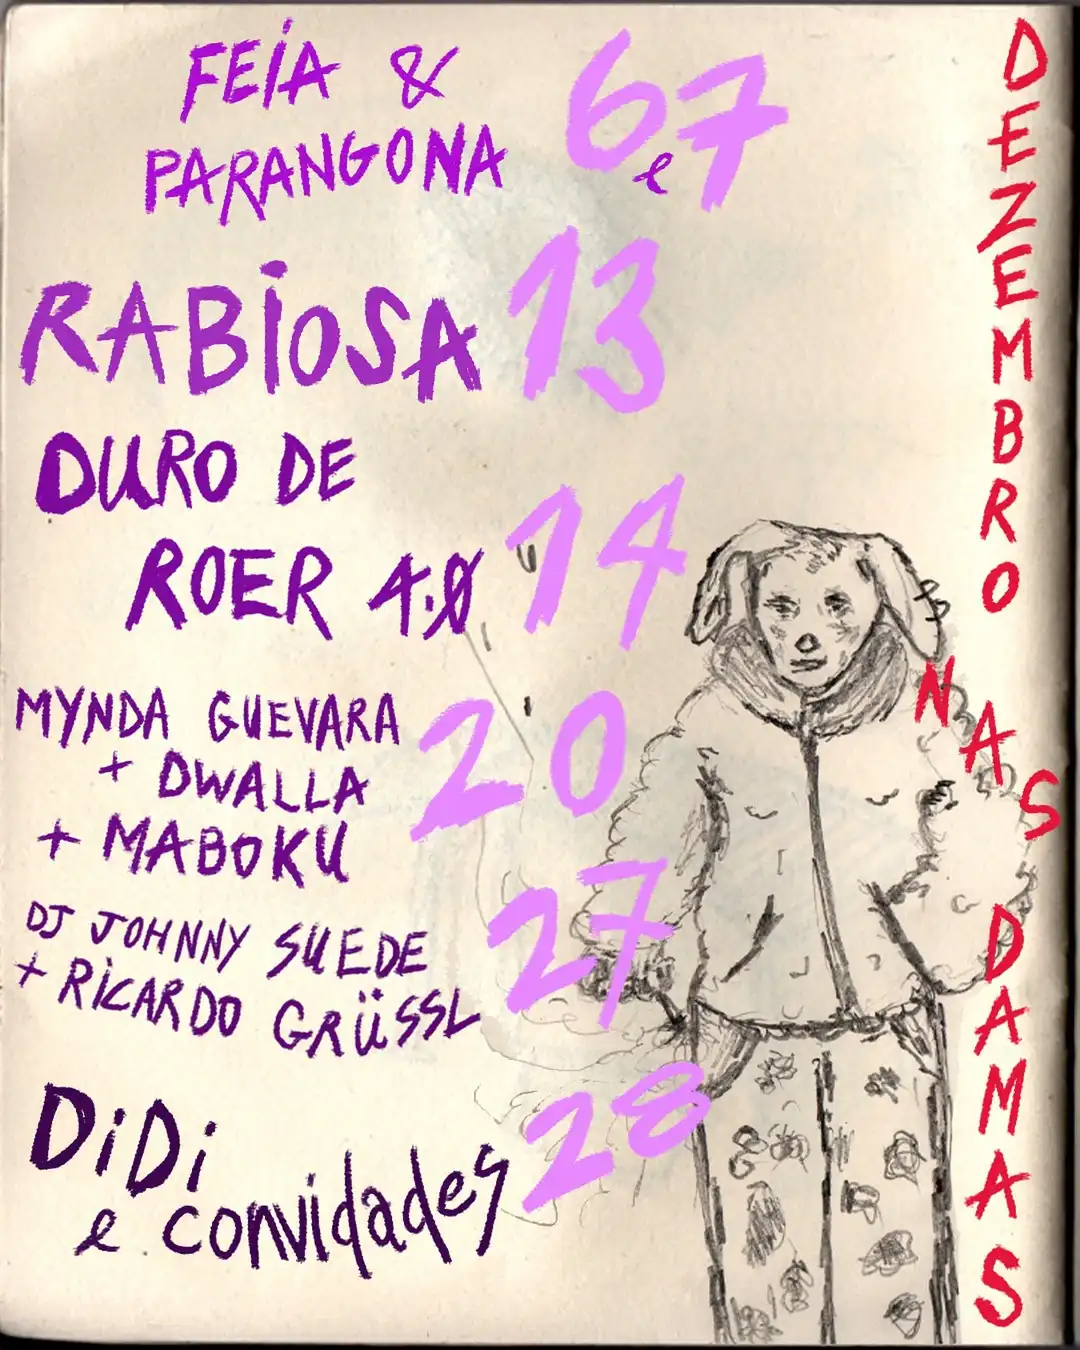 FEIA &
PARANGONA
6 e 7
RABIOSA 13
DURO DE
ROER 4.0 14
MYNDA GUEVARA
+ DWALLA
+ MABOKU
20
DJ JOHNNY SUEDE
+ RICARDO GRÜSSL
27
DiDi
e convidades
28
DEZEMBRO NAS DAMAS